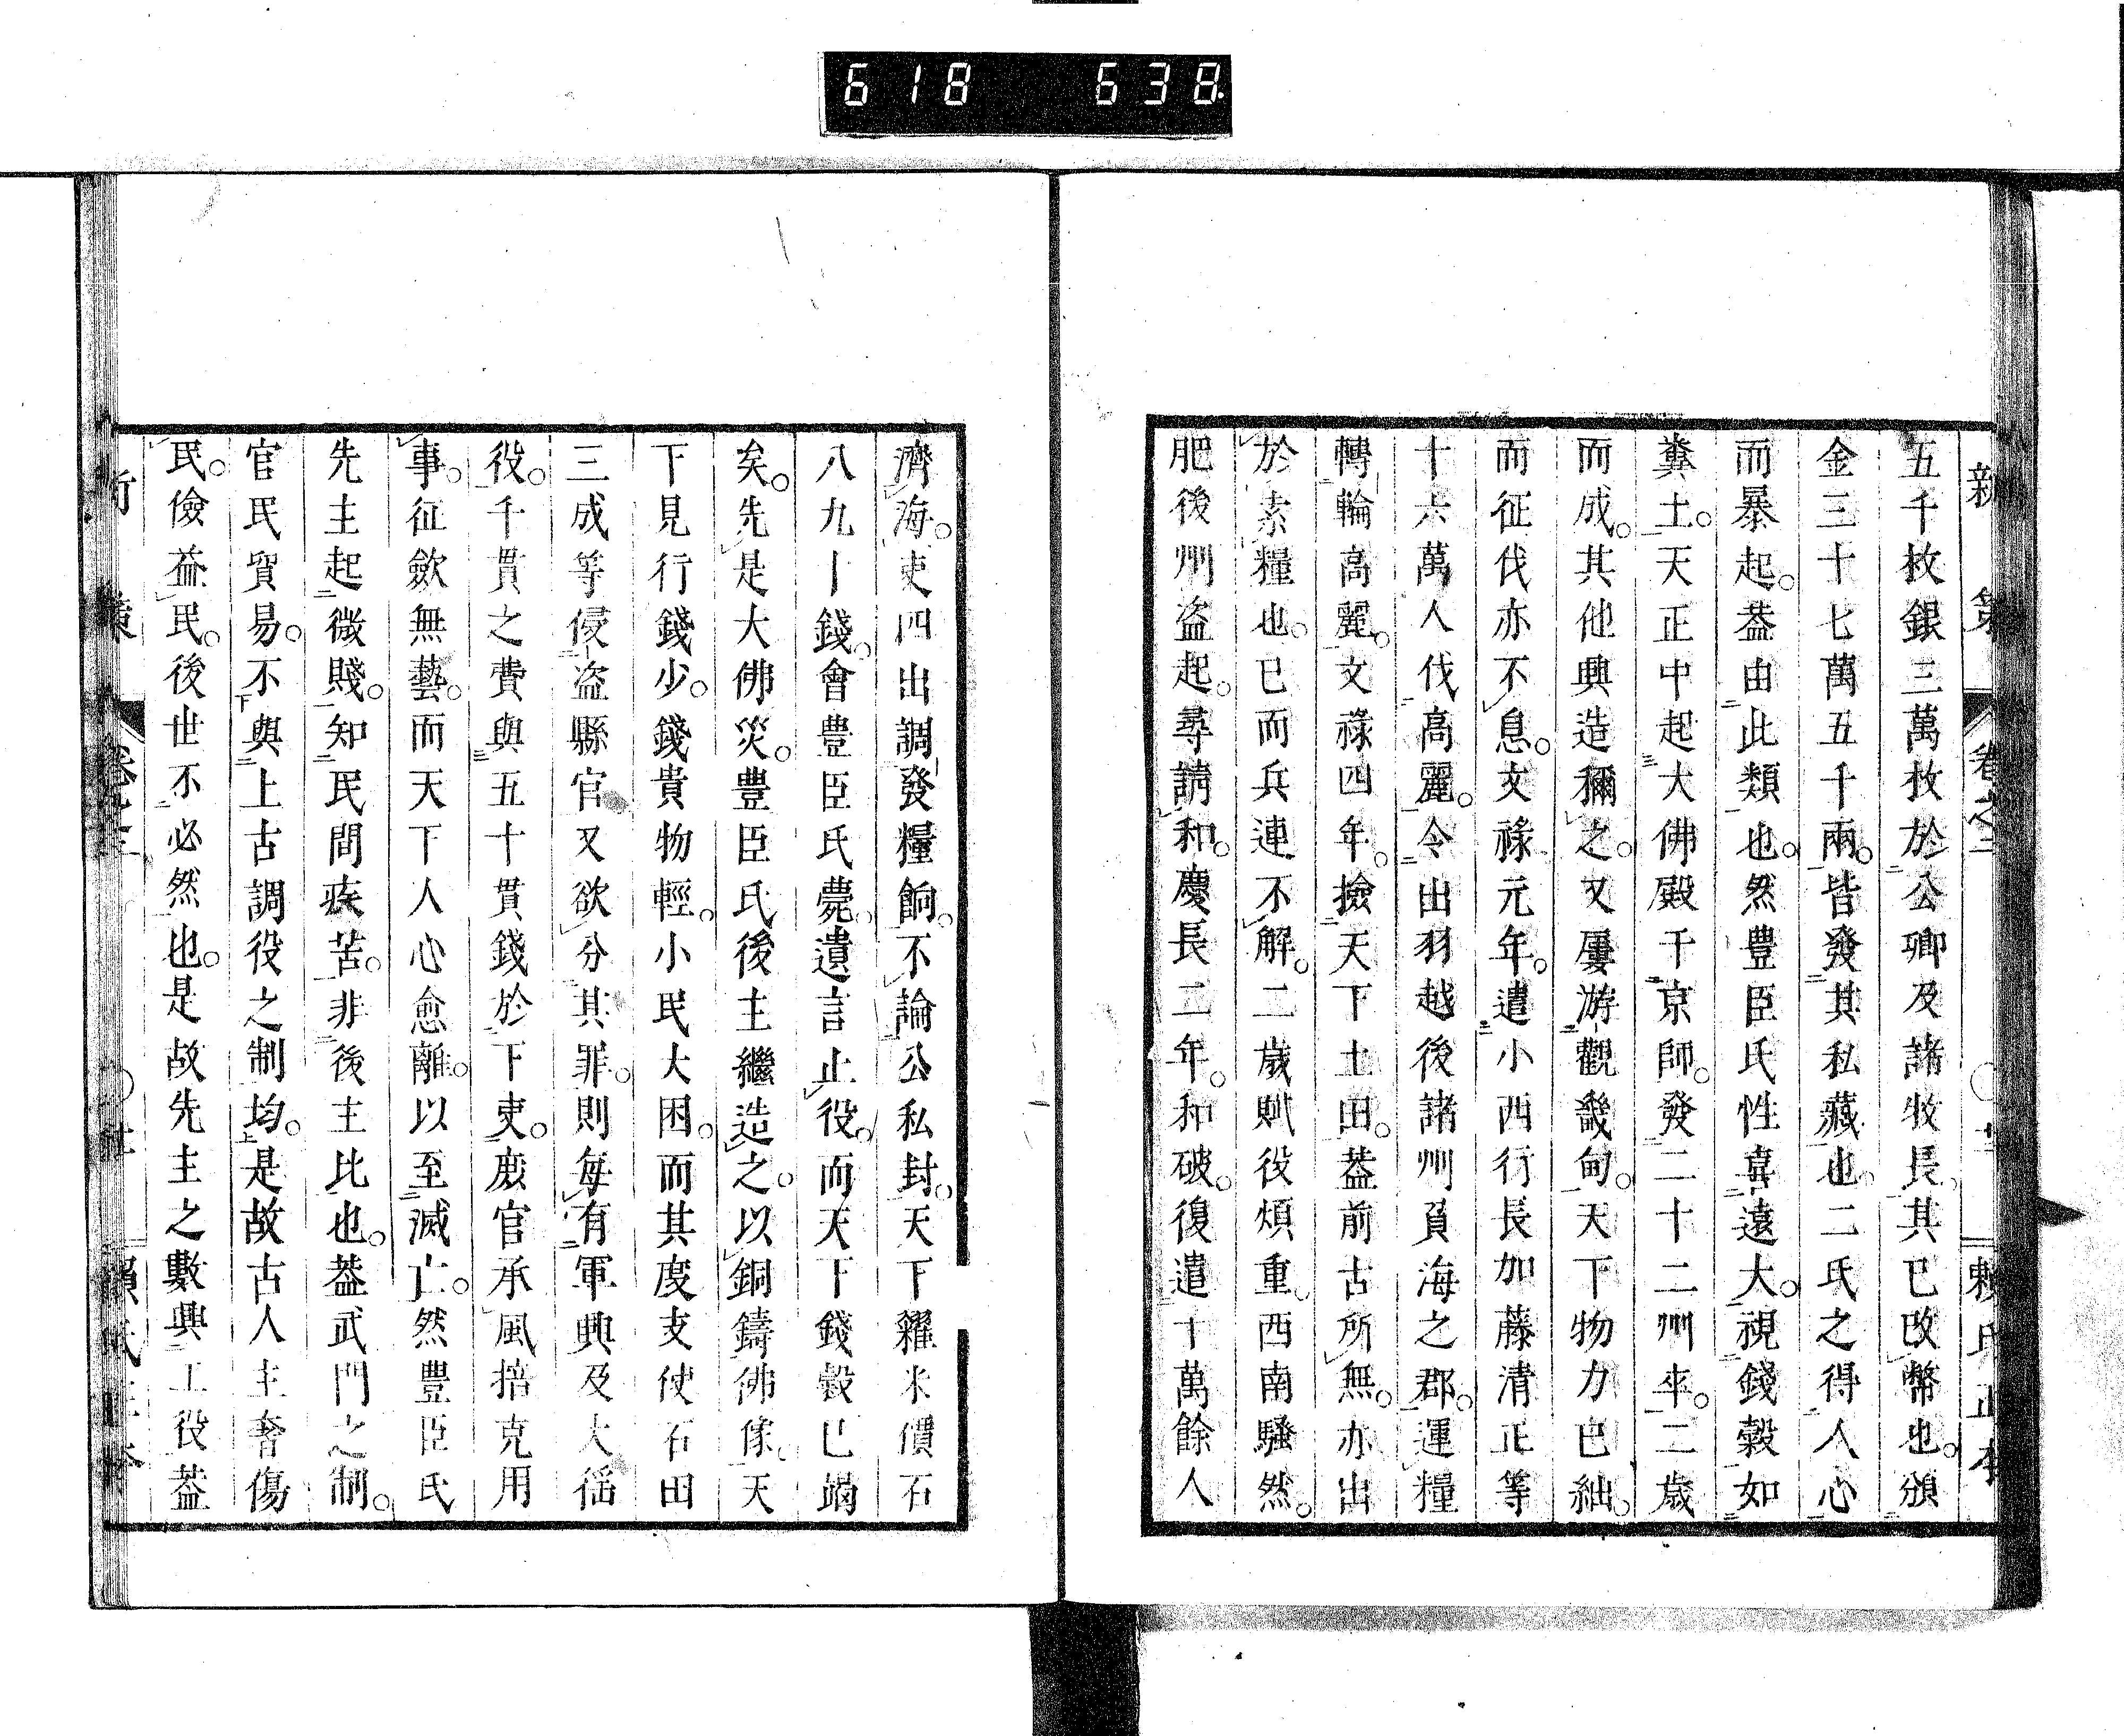 618 638
新策 卷之二 賴氏正本
五千枚銀三萬枚於公卿及諸牧長。其已改幣也。頒
金三十七萬五千兩。皆發其私藏也。二氏之得人心
而暴起。葢由此類也。然豊臣氏性喜遠大。視錢穀如
糞土。天正中起大佛殿于京師。發二十二州卒。二歲
而成。其他興造穪之。又屢游觀畿甸。天下物力已絀。
而征伐亦不息。文祿元年。遣小西行長加藤清正等
十六萬人伐高麗。令出羽越後諸州負海之郡。運糧
轉輪高麗。文祿四年。撿天下土田。葢前古所無。亦出
於索糧也。已而兵連不解。二歲賦役煩重。西南騷然。
肥後州盗起。尋請和。慶長二年。和破。復遣十萬餘人
濟海。吏四出調發糧餉。不論公私封。天下糴米價石
八九十錢。會豊臣氏薨。遺言止役。而天下錢穀已竭
矣。先是大佛災。豊臣氏後主繼造之。以銅鑄佛像。天
下見行錢少。錢貴物輕。小民大困。而其度支使石田
三成等侵盗縣官。又欲分其罪。則每有軍興及大徭
役。千貫之費與五十貫錢於下吏。庶官承風掊克用
事。征歛無藝。而天下人心愈離。以至滅亡。然豊臣氏
先主起微賤。知民間疾苦。非後主比也。葢武門之制。
官民貿易。不與上古調役之制均。是故古人主奢傷
民。儉益民。後世不必然也。是故先主之數興工役葢